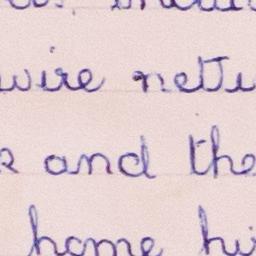 wire nett
and the
home hi